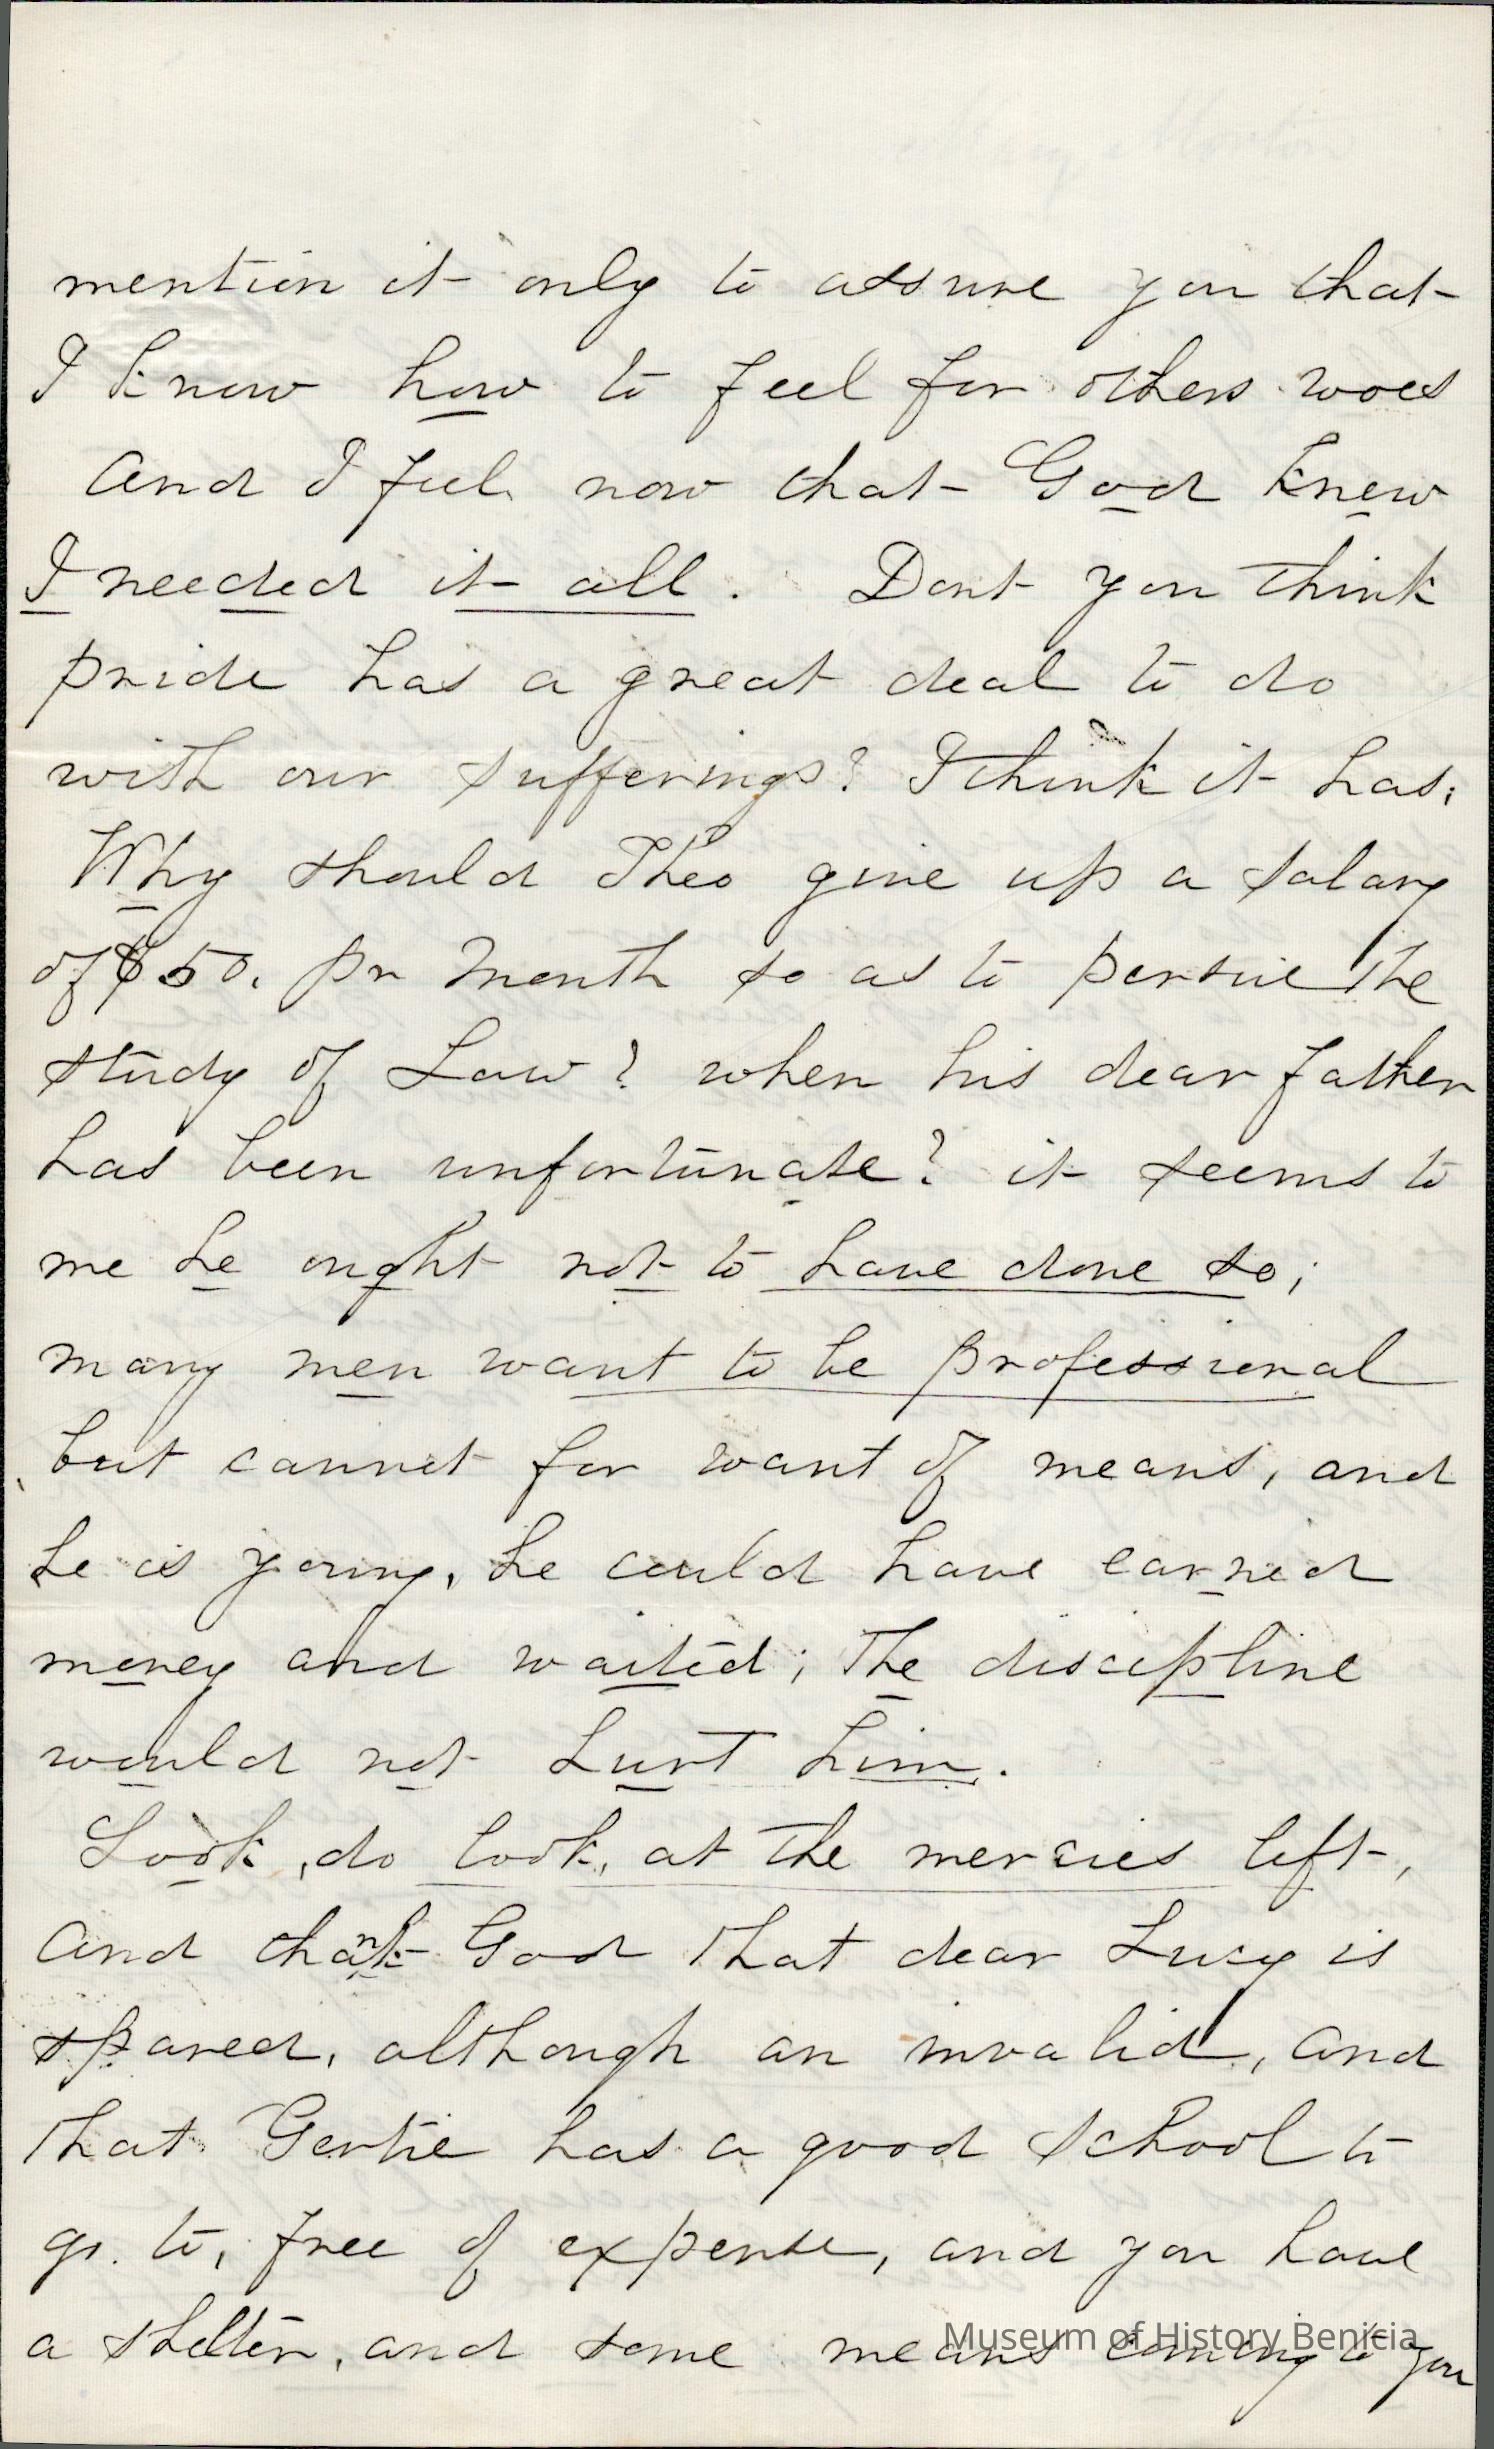 mention it only to assure you that
I know how to feel for others woes
And I feel now that God knew
I needed it all. Dont you think
pride has a great deal to do
with our sufferings? I think it has;
Why should Theo give up a salary
of $50. pr Month so as to persue the
study of Law? when his dear father
has been unfortunate? it seems to
me he ought not to have done so;
many men want to be professional
but cannot for want of means, and
he is young, he could have earned
money and waited; The discipline
would not hurt him.
Look, do look, at the mercies left,
And thank God that dear Lucy is
spared, although an invalid, and
that Gertie has a good school to
go to, free of expense, and you have
a shelter, and some means coming to you
Museum of History Benicia